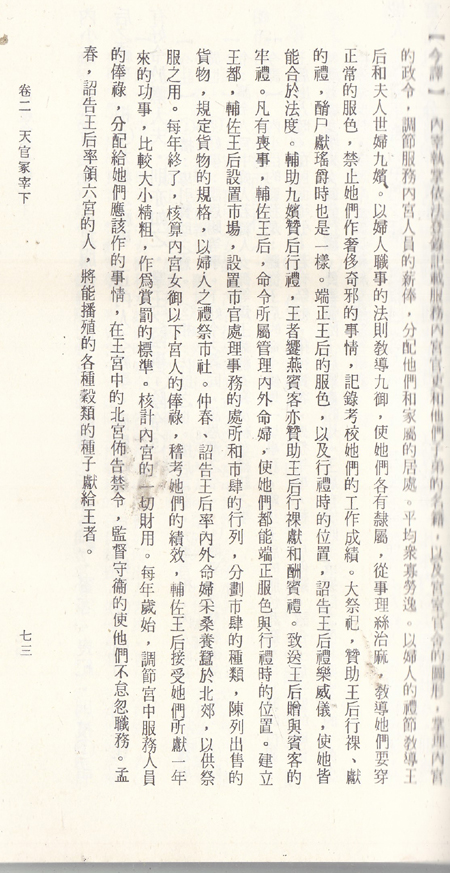 【今譯】 內宰執掌依
的政令，調節服務內宮人員的薪俸，分配他們和家屬的居處。平均衆寡勞逸。以婦人的禮節教導王
后和夫人世婦九嬪。以婦人職事的法則教導九御，使她們各有隸屬，從事理絲治麻，教導她們要穿
正常的服色，禁止她們作奢侈奇邪的事情，記錄考校她們的工作成績。大祭祀，贊助王后行裸、獻
的禮，酳尸獻瑤爵時也是一樣。端正王后的服色，以及行禮時的位置，詔告王后禮樂威儀，使她皆
能合於法度。輔助九嬪贊后行禮，王者饗燕賓客亦贊助王后行裸獻和酬賓禮。致送王后贈與賓客的
牢禮。凡有喪事，輔佐王后，命令所屬管理內外命婦，使她們都能端正服色與行禮時的位置。建立
王都，輔佐王后設置市場，設置市官處理事務的處所和市肆的行列，分劃市肆的種類，陳列出售的
貨物，規定貨物的規格，以婦人之禮祭市社。仲春、詔告王后率內外命婦采桑養蠶於北郊，以供祭
服之用。每年終了，核算內宮女御以下宮人的俸祿，稽考她們的績效，輔佐王后接受她們所獻一年
來的功事，比較大小精粗，作爲賞罰的標準。核計內宮的一切財用。每年歲始，調節宮中服務人員
的俸祿，分配給她們應該作的事情，在王宮中的北宮佈告禁令，監督守衞的使他們不怠忽職務。孟
春，詔告王后率領六宮的人，將能播殖的各種穀類的種子獻給王者。
卷二 天官冢宰下
七三